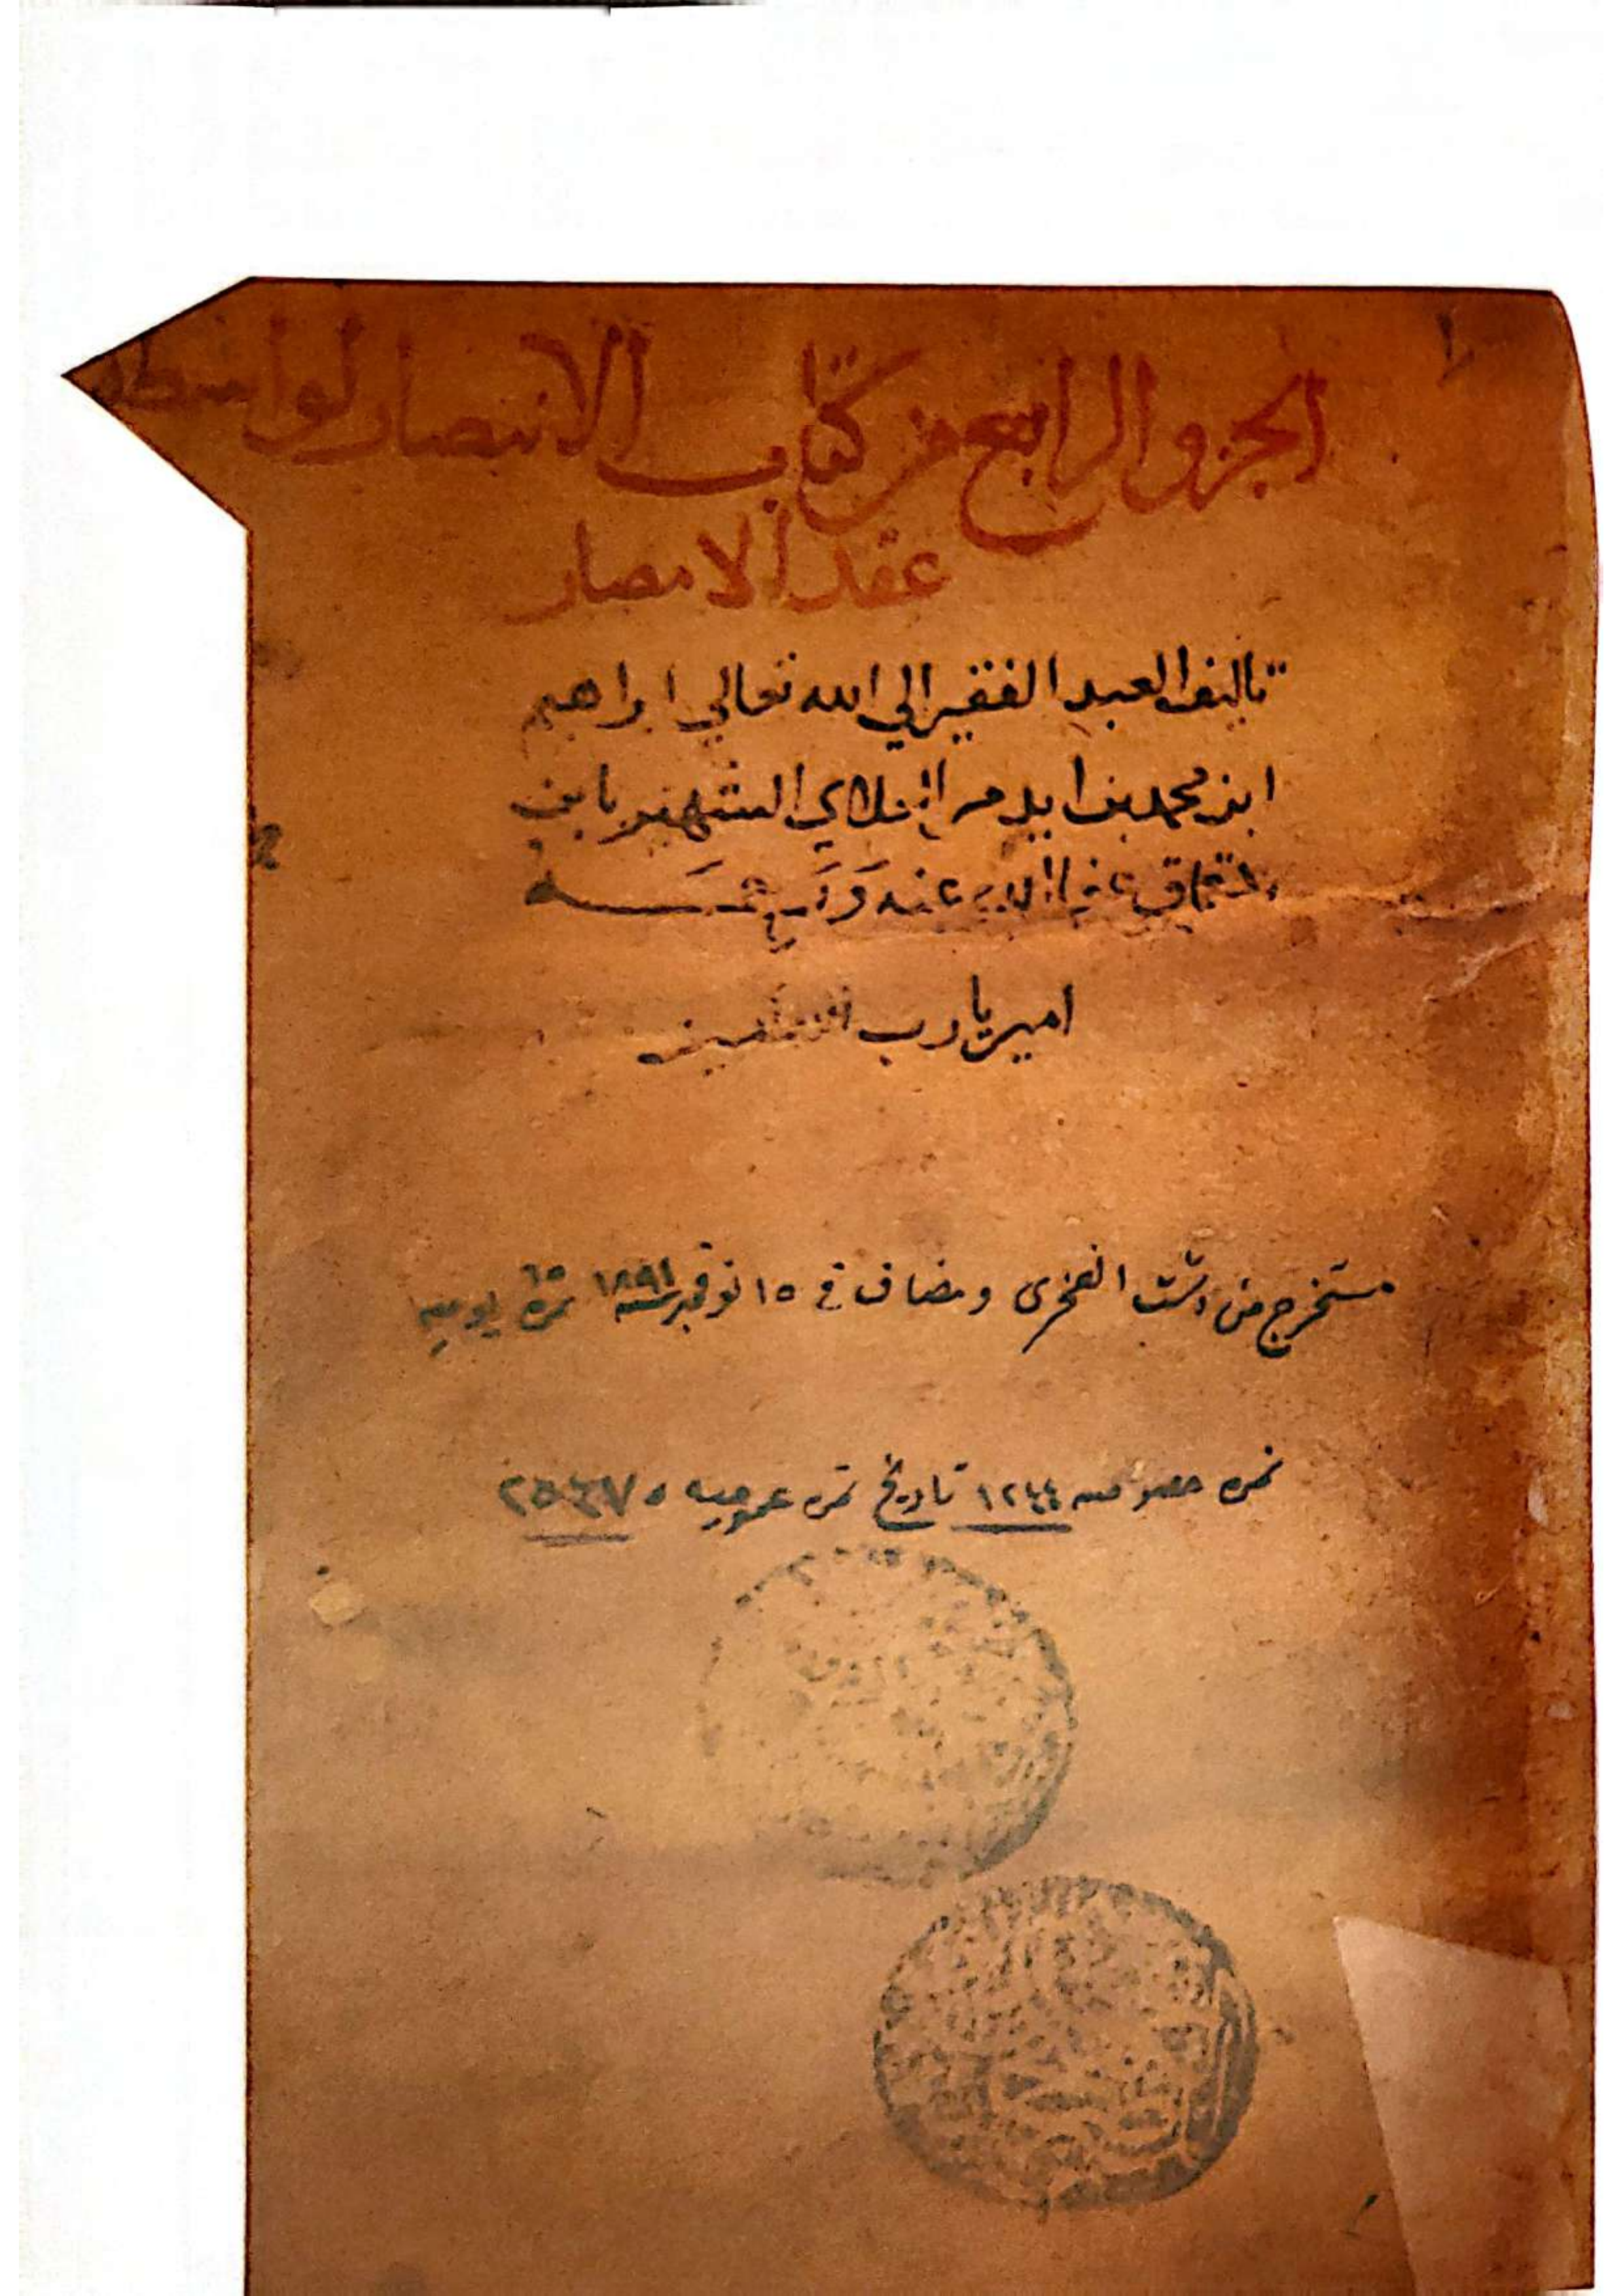 الجزو الرابع من كتاب الانتصار لواسطة
عقد الامصار
تاليف العبد الفقير الي الله تعالي ابراهيم
ابن محمد بن ايدمر العلاي الشهير بابن
دقماق عفي الله عنه ورحمه
امين يا رب العالمين
مستخرج من دشت الفخرى ومضاف في ١٥ نوفمبر سنة ١٨٩١ نمرة ٦٥ يوميه
نمره خصوصيه ١٢٤٤ تاريخ نمره عموميه